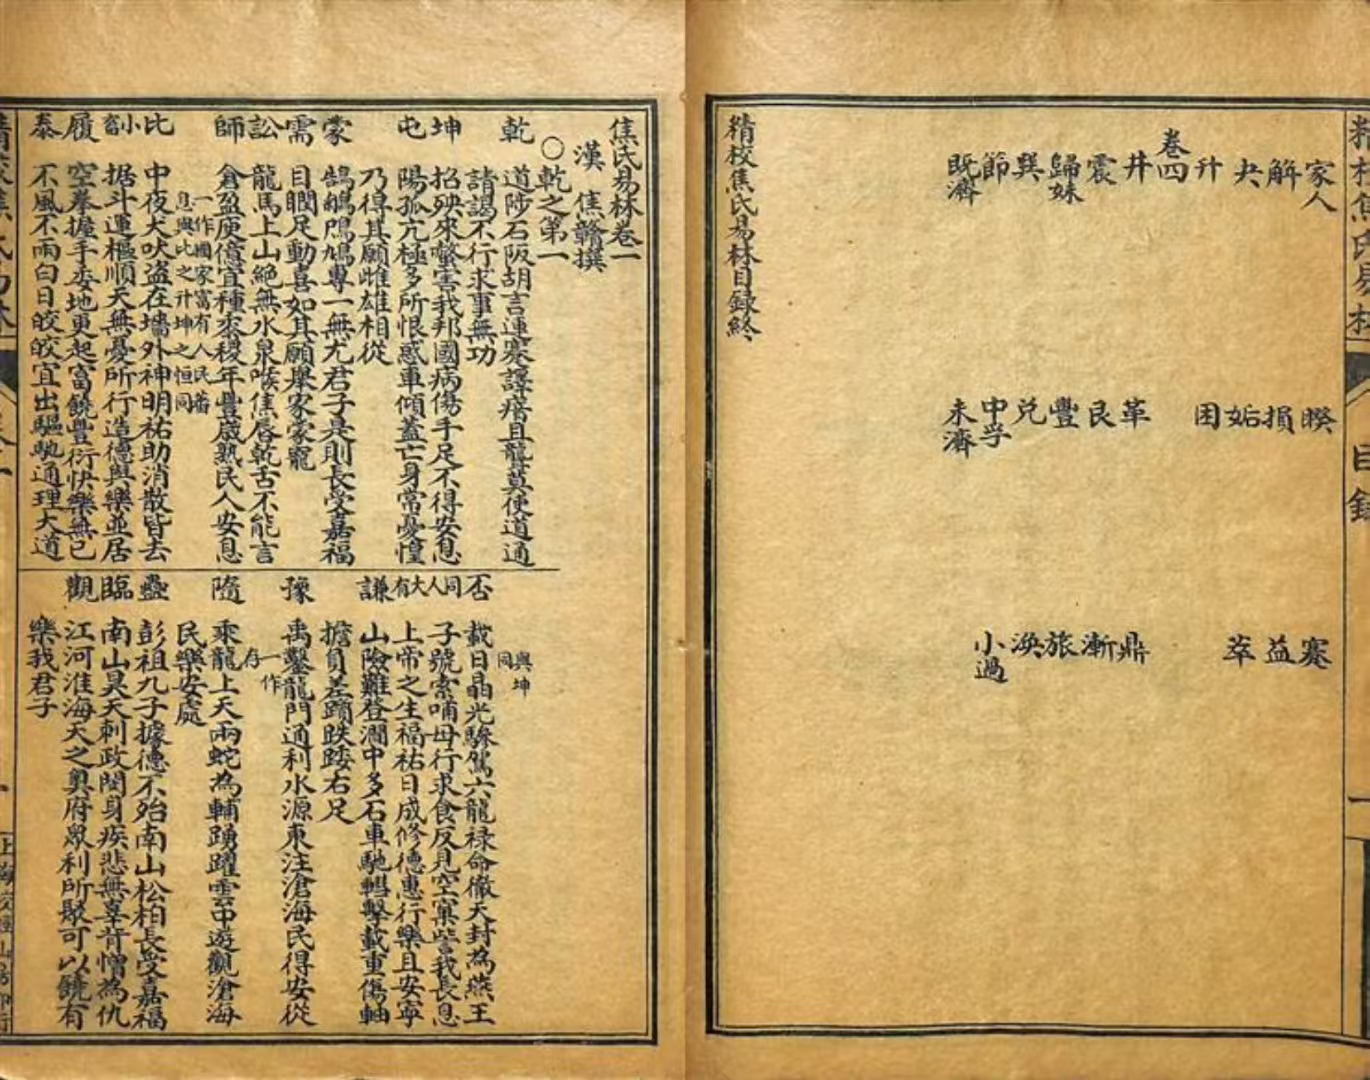 家人 睽 蹇
解 損 益
夬 姤 萃
升 困
卷四
井 革 鼎
震 艮 漸
歸妹 豐 旅
巽 兌 渙
節 中孚 小過
既濟 未濟
精校焦氏易林目録終
焦氏易林卷一
漢 焦贛撰
○乾之第一
乾 道陟石阪胡言連蹇譯瘖且聾莫使道通
請謁不行求事無功
坤 招殃來螫害我邦國病傷手足不得安息
屯 陽孤亢極多所恨惑車傾蓋亡身常憂惶
乃得其願雌雄相從
蒙 鵠鵴鳲鳩專一無尤君子是則長受嘉福
需 目瞤足動喜如其願舉家蒙寵
訟 龍馬上山絕無水泉喉焦唇乾舌不能言
師 倉盈庾億宜種黍稷年豐歲熟民人安息
一作國家富有人民蕃
息與比之升坤之恒同
比 中夜犬吠盜在墻外神明祐助消散皆去
小畜 据斗運樞順天無憂所行造德與樂並居
履 空拳握手委地更起富饒豐衍快樂無已
泰 不風不雨白日皎皎宜出驅馳通理大道
與坤
同
否 載日晶光驂駕六龍祿命徹天封為燕王
同人 子號索哺母行求食反見空窠訾我長息
大有 上帝之生福祐日成修德惠行樂且安寧
謙 山險難登澗中多石車馳轊擊載重傷軸
擔負差躓跌踒右足
豫 禹鑿龍門通利水源東注滄海民得安從
一作
存
隨 乘龍上天兩蛇為輔踴躍雲中遊觀滄海
民樂安處
蠱 彭祖九子據德不殆南山松柏長受嘉福
臨 南山昊天刺政閔身疾悲無辜背憎為仇
觀 江河淮海天之奧府眾利所聚可以饒有
樂我君子